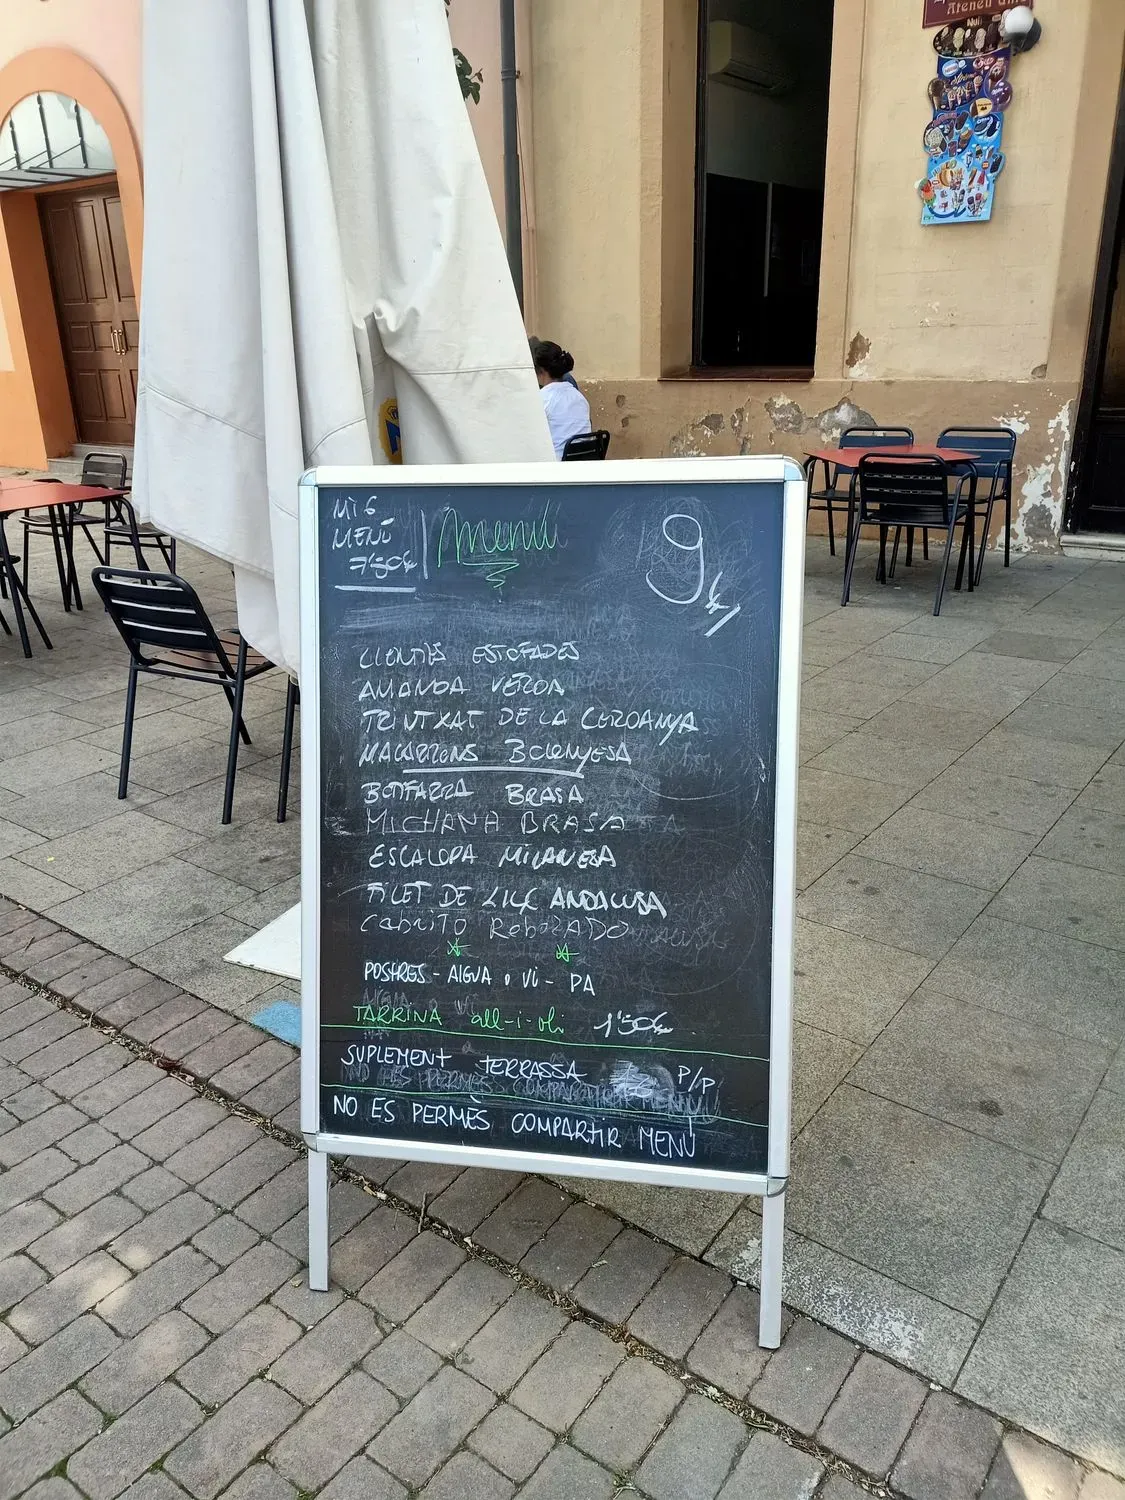 Ateneu
MIG
MENÚ
7'50€
Menú
9€/
LLENTIES ESTOFADES
AMANDA VERDA
TRINTXAT DE LA CERDANYA
MACARRONS BOLONYESA
BOTIFARRA BRASA
MICHANA BRASA
ESCALOPA MILANESA
FILET DE LLUÇ ANDALUSA
CABRITO REBOZADO
POSTRES - AIGUA o VI - PA
TARRINA all-i-oli 1'50€
SUPLEMENT TERRASSA P/P
NO ES PERMÈS COMPARTIR MENÚ